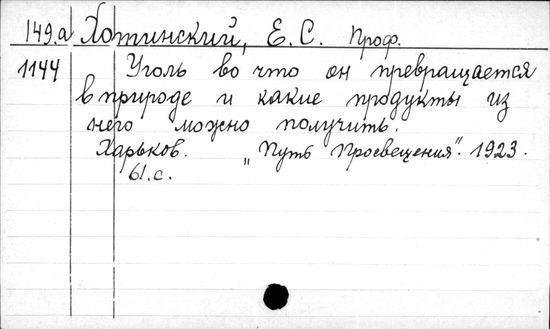 149.а Хотинский, Е. С. Проф.
1144 Уголь во что он превращается
в природе и какие продукты из
него можно получить.
Харьков. „Путь Просвещения". 1923.
61.с.